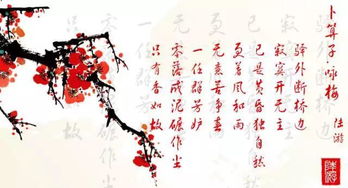 卜算子·咏梅
陆游
驿外断桥边
寂寞开无主
已是黄昏独自愁
更着风和雨
无意苦争春
一任群芳妒
零落成泥碾作尘
只有香如故
陆游